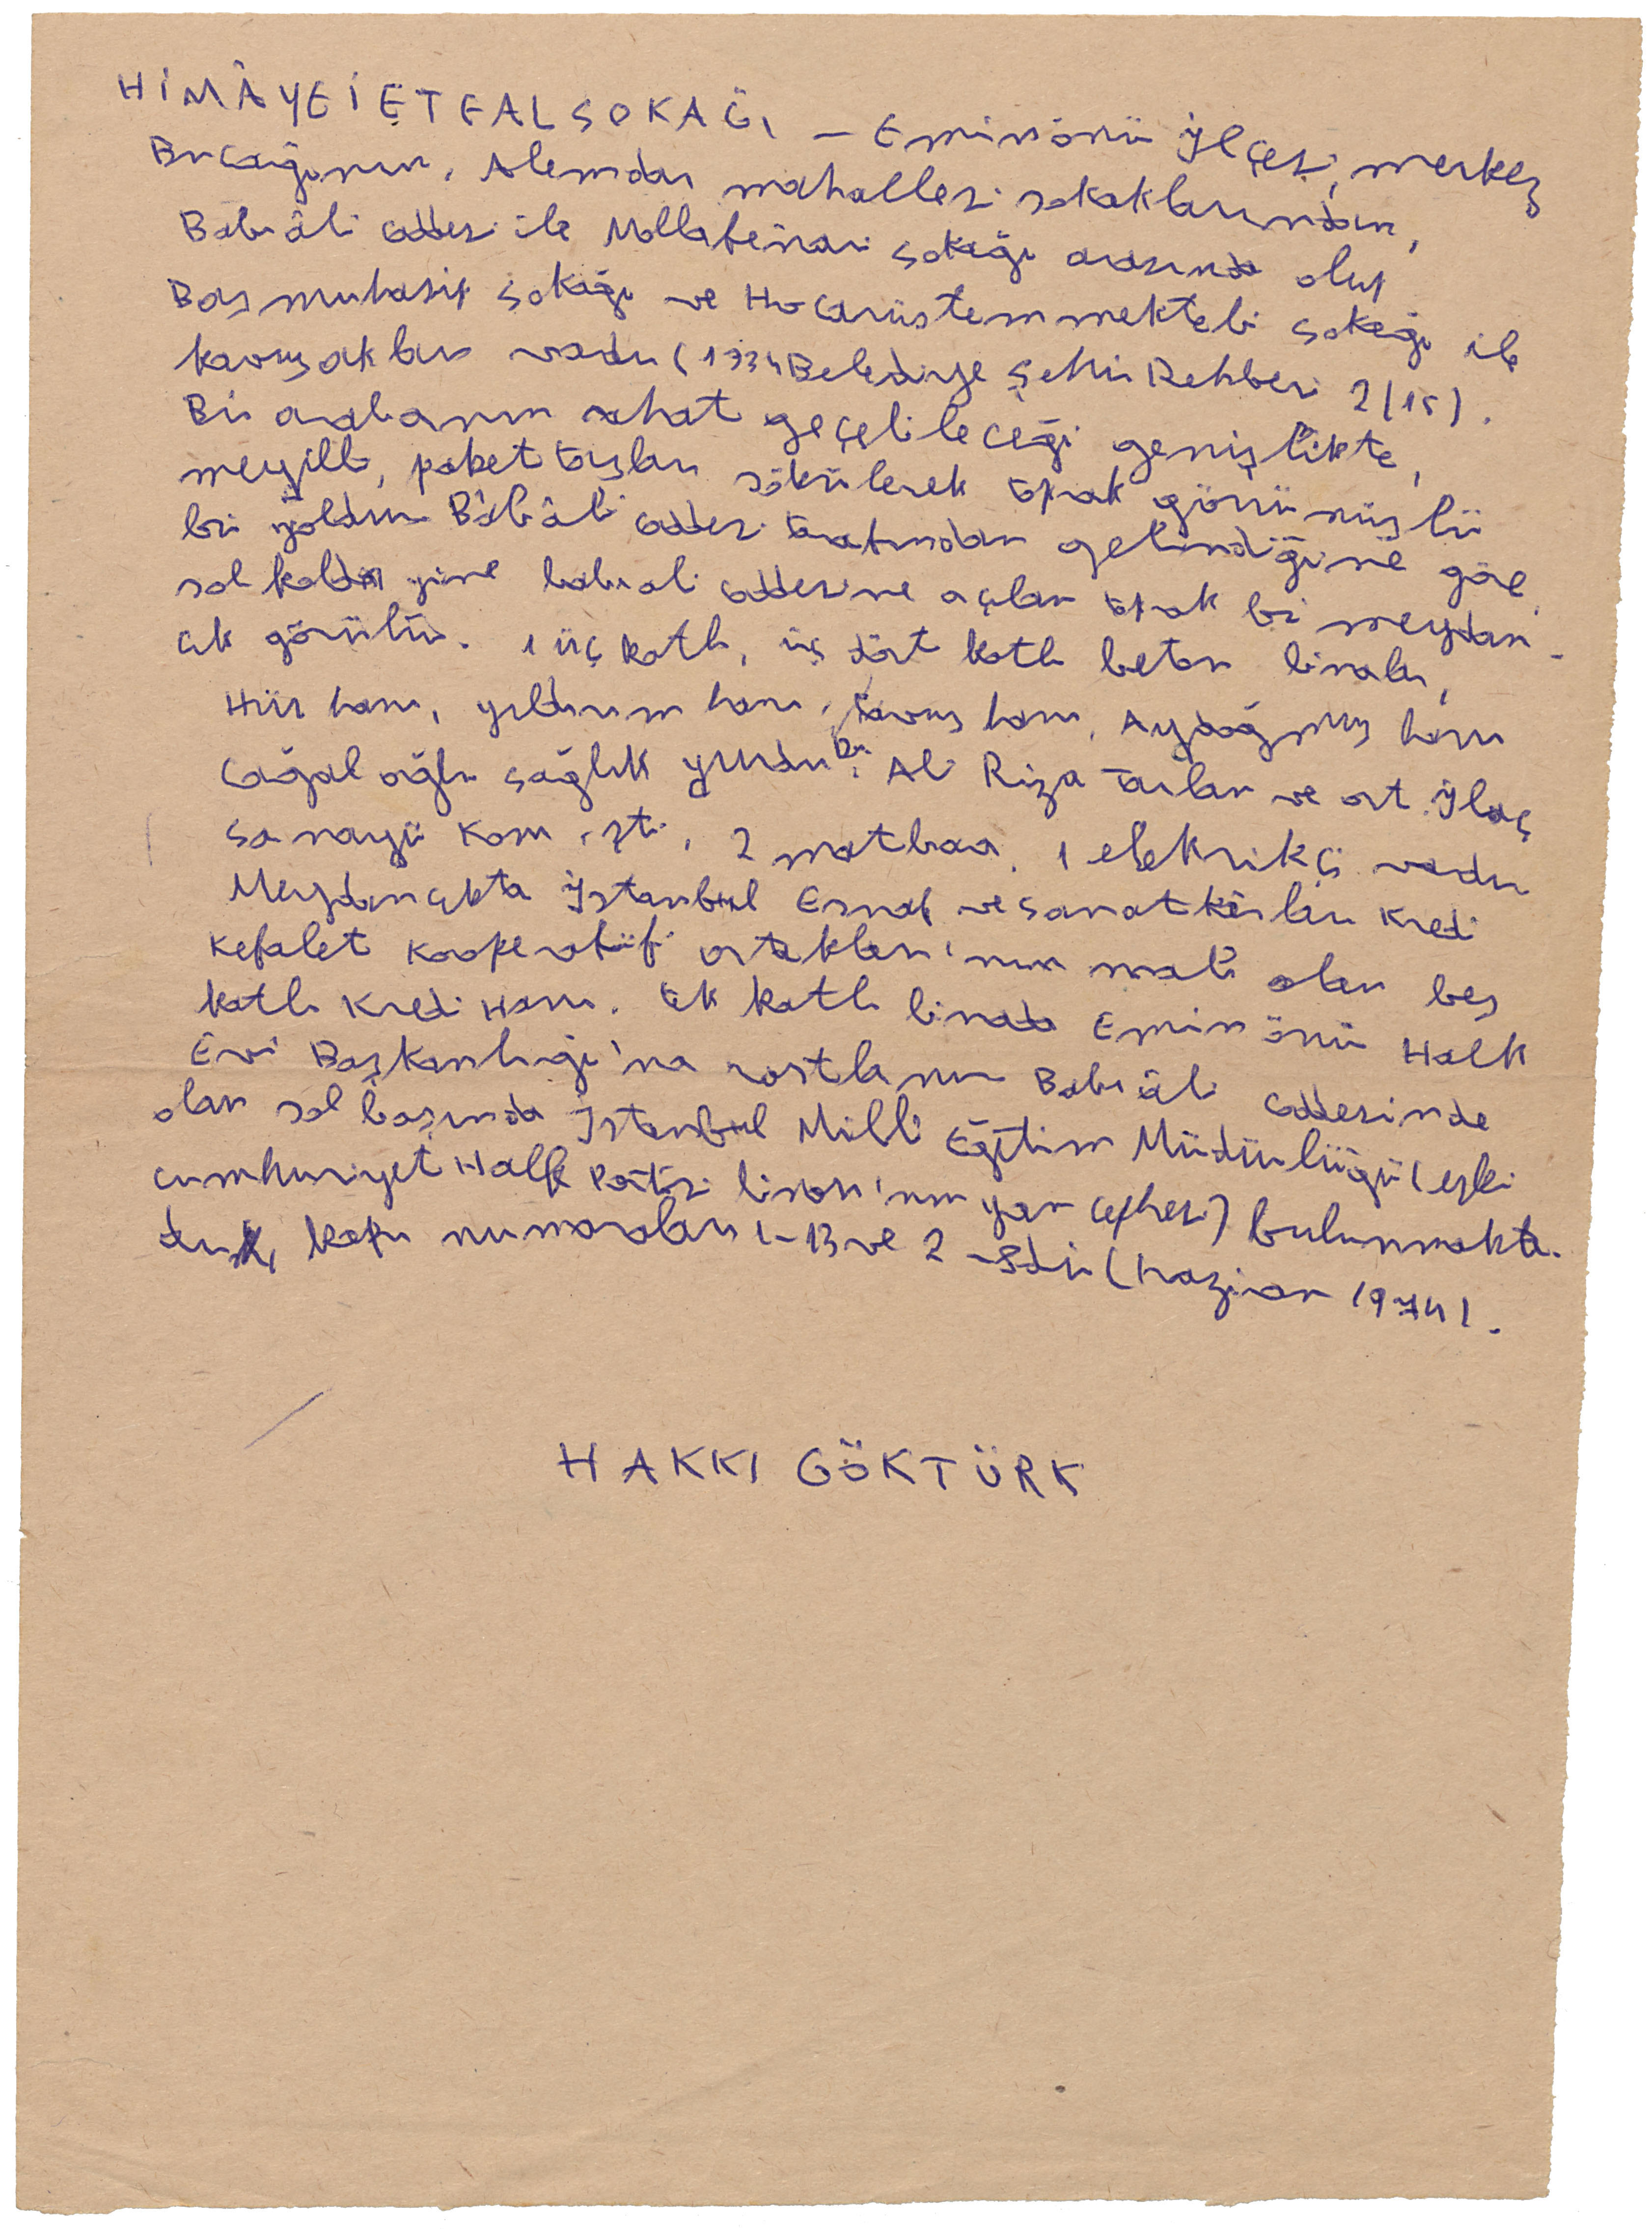 HİMÂYEİETFALSOKAĞI — Eminönü İlçesi, merkez
Bucağının, Alemdar mahallesi sokaklarından,
Babıâli caddesi ile Mollafenari sokağı arasında olup
Başmuhasip sokağı ve Hocarüstemmektebi sokağı ile
kavuşakları vardır (1934 Belediye Şehir Rehberi 2/15).
Bir arabanın rahat geçebileceği genişlikte,
meyilli, paket taşları sökülerek toprak görünüşlü
bir yoldur. Bâbıâli caddesi tarafından gelindiğine göre,
sol kolda yine babıali caddesine açılan toprak bir meydan-
cık görülür. 1 üç katlı, üç dört katlı beton binalar,
Hür hanı, yıldırım hanı, Tavus hanı, Aydoğmuş hanı
Cağaloğlu sağlık yurdu, Dr. Ali Rıza Tarlan ve ort. İlaç
Sanayii Kom. şti, 2 matbaa, 1 elektrikçi vardır
Meydancıkta İstanbul Esnaf ve Sanatkârları Kredi
Kefalet Kooperatifi ortakları'nın malı olan beş
katlı Kredi Hanı. tek katlı binada Eminönü Halk
Evi Başkanlığı'na rastlanır Babıâli caddesinde
olan sol başında İstanbul Milli Eğitim Müdürlüğü (eski
Cumhuriyet Halk Partisi binası'nın yan cephesi) bulunmakta.
dır, kapı numaraları 1-13 ve 2-8dir (Haziran 1974).
HAKKI GÖKTÜRK